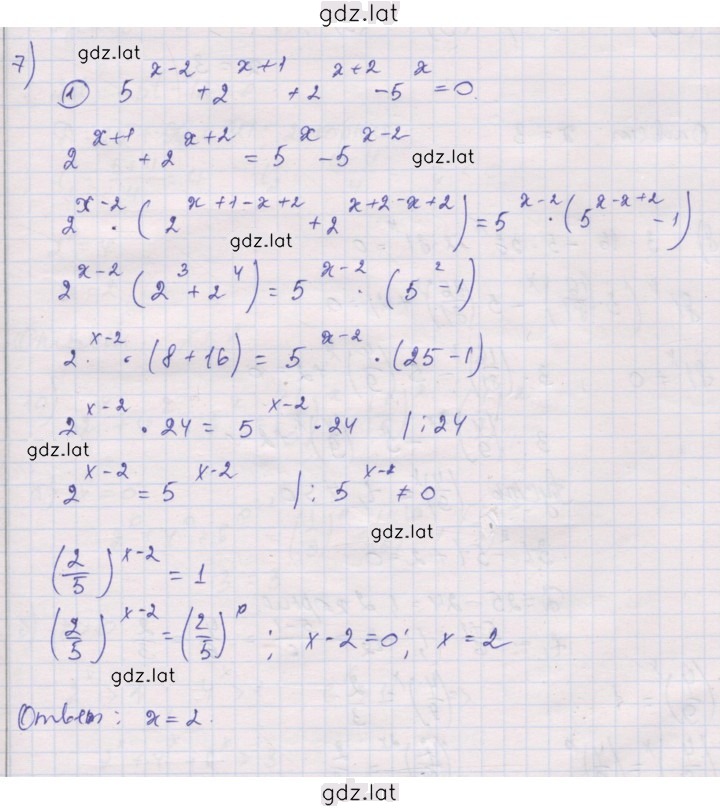 gdz.lat
7) gdz.lat
① 5^(x-2) + 2^(x+1) + 2^(x+2) - 5^x = 0.
2^(x+1) + 2^(x+2) = 5^x - 5^(x-2)
gdz.lat
2^(x-2) · (2^(x+1-x+2) + 2^(x+2-x+2)) = 5^(x-2) · (5^(x-x+2) - 1)
gdz.lat
2^(x-2) (2^3 + 2^4) = 5^(x-2) · (5^2 - 1)
2^(x-2) · (8+16) = 5^(x-2) · (25-1)
2^(x-2) · 24 = 5^(x-2) · 24 | : 24
gdz.lat
2^(x-2) = 5^(x-2) | : 5^(x-2) ≠ 0
gdz.lat
(2/5)^(x-2) = 1
(2/5)^(x-2) = (2/5)^0 ; x-2=0; x=2
gdz.lat
Ответ: x=2.
gdz.lat